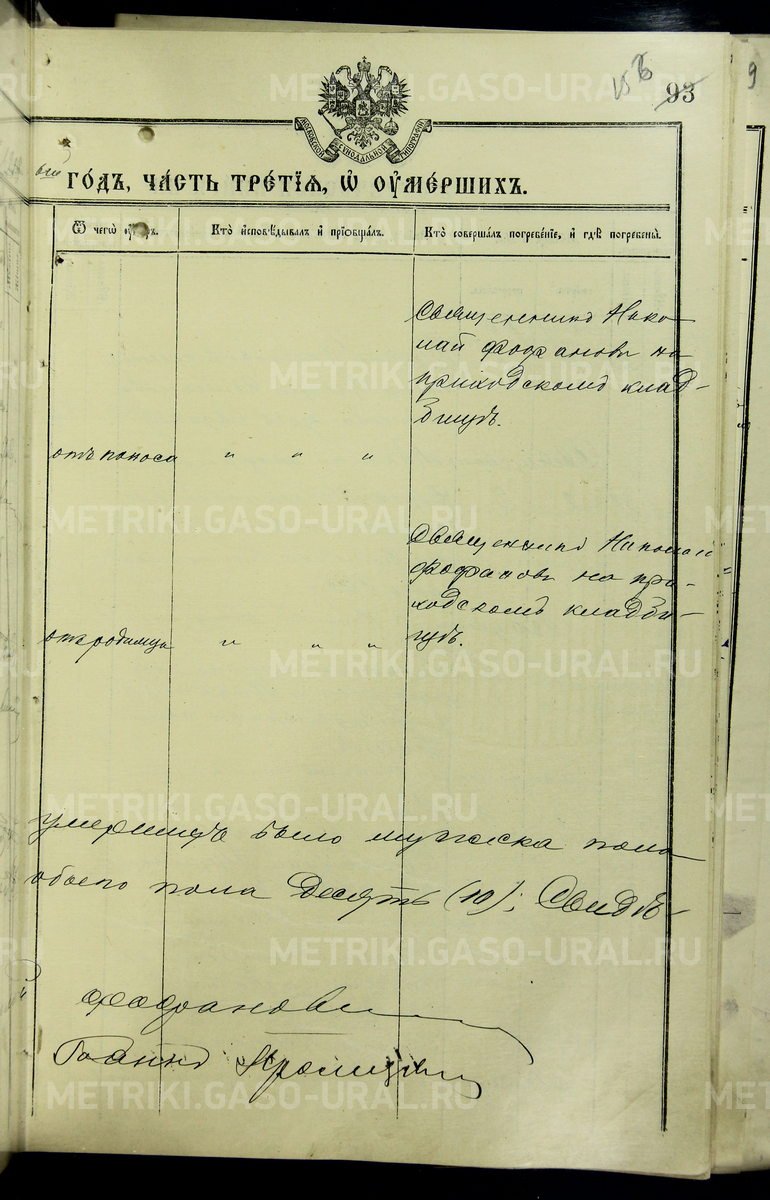 93
МОСКОВСКОЙ СУНОДАЛЬНОЙ ТИПОГРАФІИ
го́дъ, ча́сть тре́тїѧ, ѡ оу҆ме́ршихъ.
Ѿ чегѡ̀ оу́меръ.
Кто̀ и҆сповѣ́дывалъ и҆ прїѡбща́лъ.
Кто̀ соверша́лъ погребе́нїе, и҆ гдѣ̀ погребены̀.
Священникъ Нико-
лай Фофановъ на
приходскомъ клад-
бищѣ.
отъ поноса " " "
Священникъ Николай
Фофановъ на при-
ходскомъ кладби-
щѣ.
отъ родимца " " "
умершихъ было мужеска пола
обоего пола десять (10); Свидѣ-
Фофановъ
Іоаннъ
METRIKI.GASO-URAL.RU